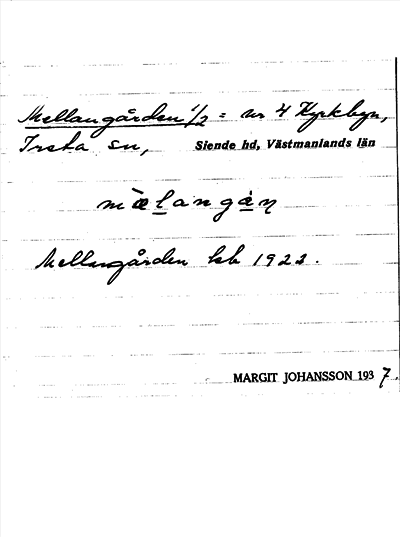 Mellangården 1/2 = nr 4 Kyrkbyn,
Irsta sn, Siende hd, Västmanlands län
mælangåṇ
Mellangården kb 1922.
MARGIT JOHANSSON 1937.